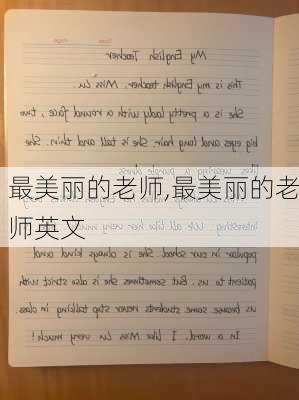 My English Teacher
This is my English teacher, Miss Lu.
She is a pretty lady with a round face, two
big eyes and long hair. She is tall and thin. She
最美丽的老师,最美丽的老
师英文
interesting. We all like her very
popular in our school. She is always kind and
patient to us. But sometimes she is also strict with
us because some students never stop talking in class.
In a word, I like Miss Lu very much!